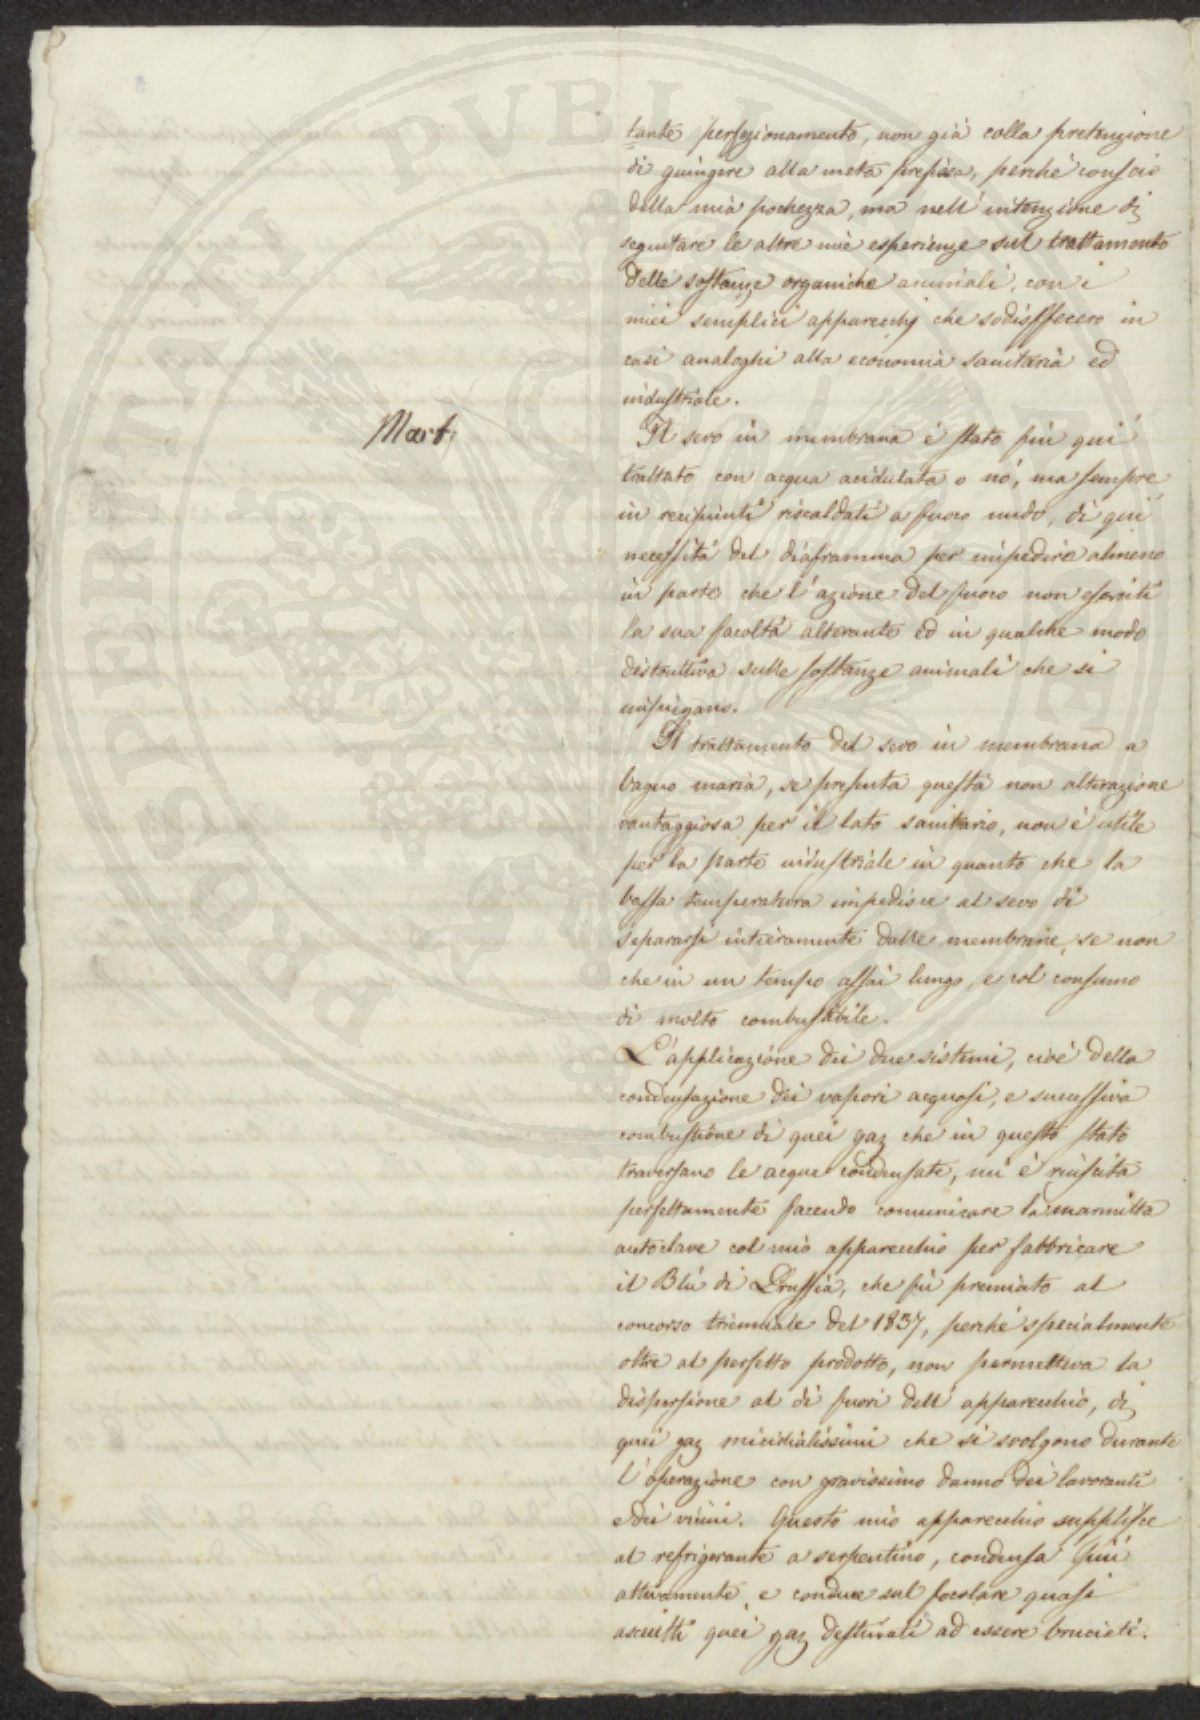 tante perfezionamento, non già colla pretenzione
di giungere alla meta prefissa, perchè conscio
della mia pochezza, ma nell'intenzione di
seguitare le altre mie esperienze sul trattamento
delle sostanze organiche animali, con i
miei semplici apparecchj che sodisffecero in
casi analoghi alla economia sanitaria ed
industriale.
Mart
Il sevo in membrana è stato fin quì
trattato con acqua acidulata o nò, ma sempre
in recipienti riscaldati a fuoco nudo, di quì
necessità del diaframma per impedire almeno
in parte che l'azione del fuoco non eserciti
la sua facoltà alterante ed in qualche modo
distruttiva sulle sostanze animali che si
impiegano.
Il trattamento del sevo in membrana a
bagno maria, se presenta questa non alterazione
vantaggiosa per il lato sanitario, non è utile
per la parte industriale in quanto che la
bassa temperatura impedisce al sevo di
separarsi intieramente dalle membrane, se non
che in un tempo assai lungo, e col consumo
di molto combustibile.
L'applicazione dei due sistemi, cioè della
condensazione dei vapori acquosi, e sucessiva
combustione di quei gaz che in questo stato
traversano le acque condensate, mi è riuscita
perfettamente facendo comunicare la marmitta
autoclave col mio apparecchio per fabbricare
il Blù di Prussia, che fù premiato al
concorso triennale del 1857, perchè specialmente
oltre al perfetto prodotto, non permetteva la
dispersione al di fuori dell'apparecchio, di
quei gaz micidialissimi che si svolgono durante
l'operazione con gravissimo danno dei lavoranti
e dei vicini. Questo mio apparecchio supplisce
al refrigerante a serpentino, condensa più
attivamente, e conduce sul focolare quasi
asciutti quei gaz destinati ad essere bruciati.
PROSPERITATI PUBLI